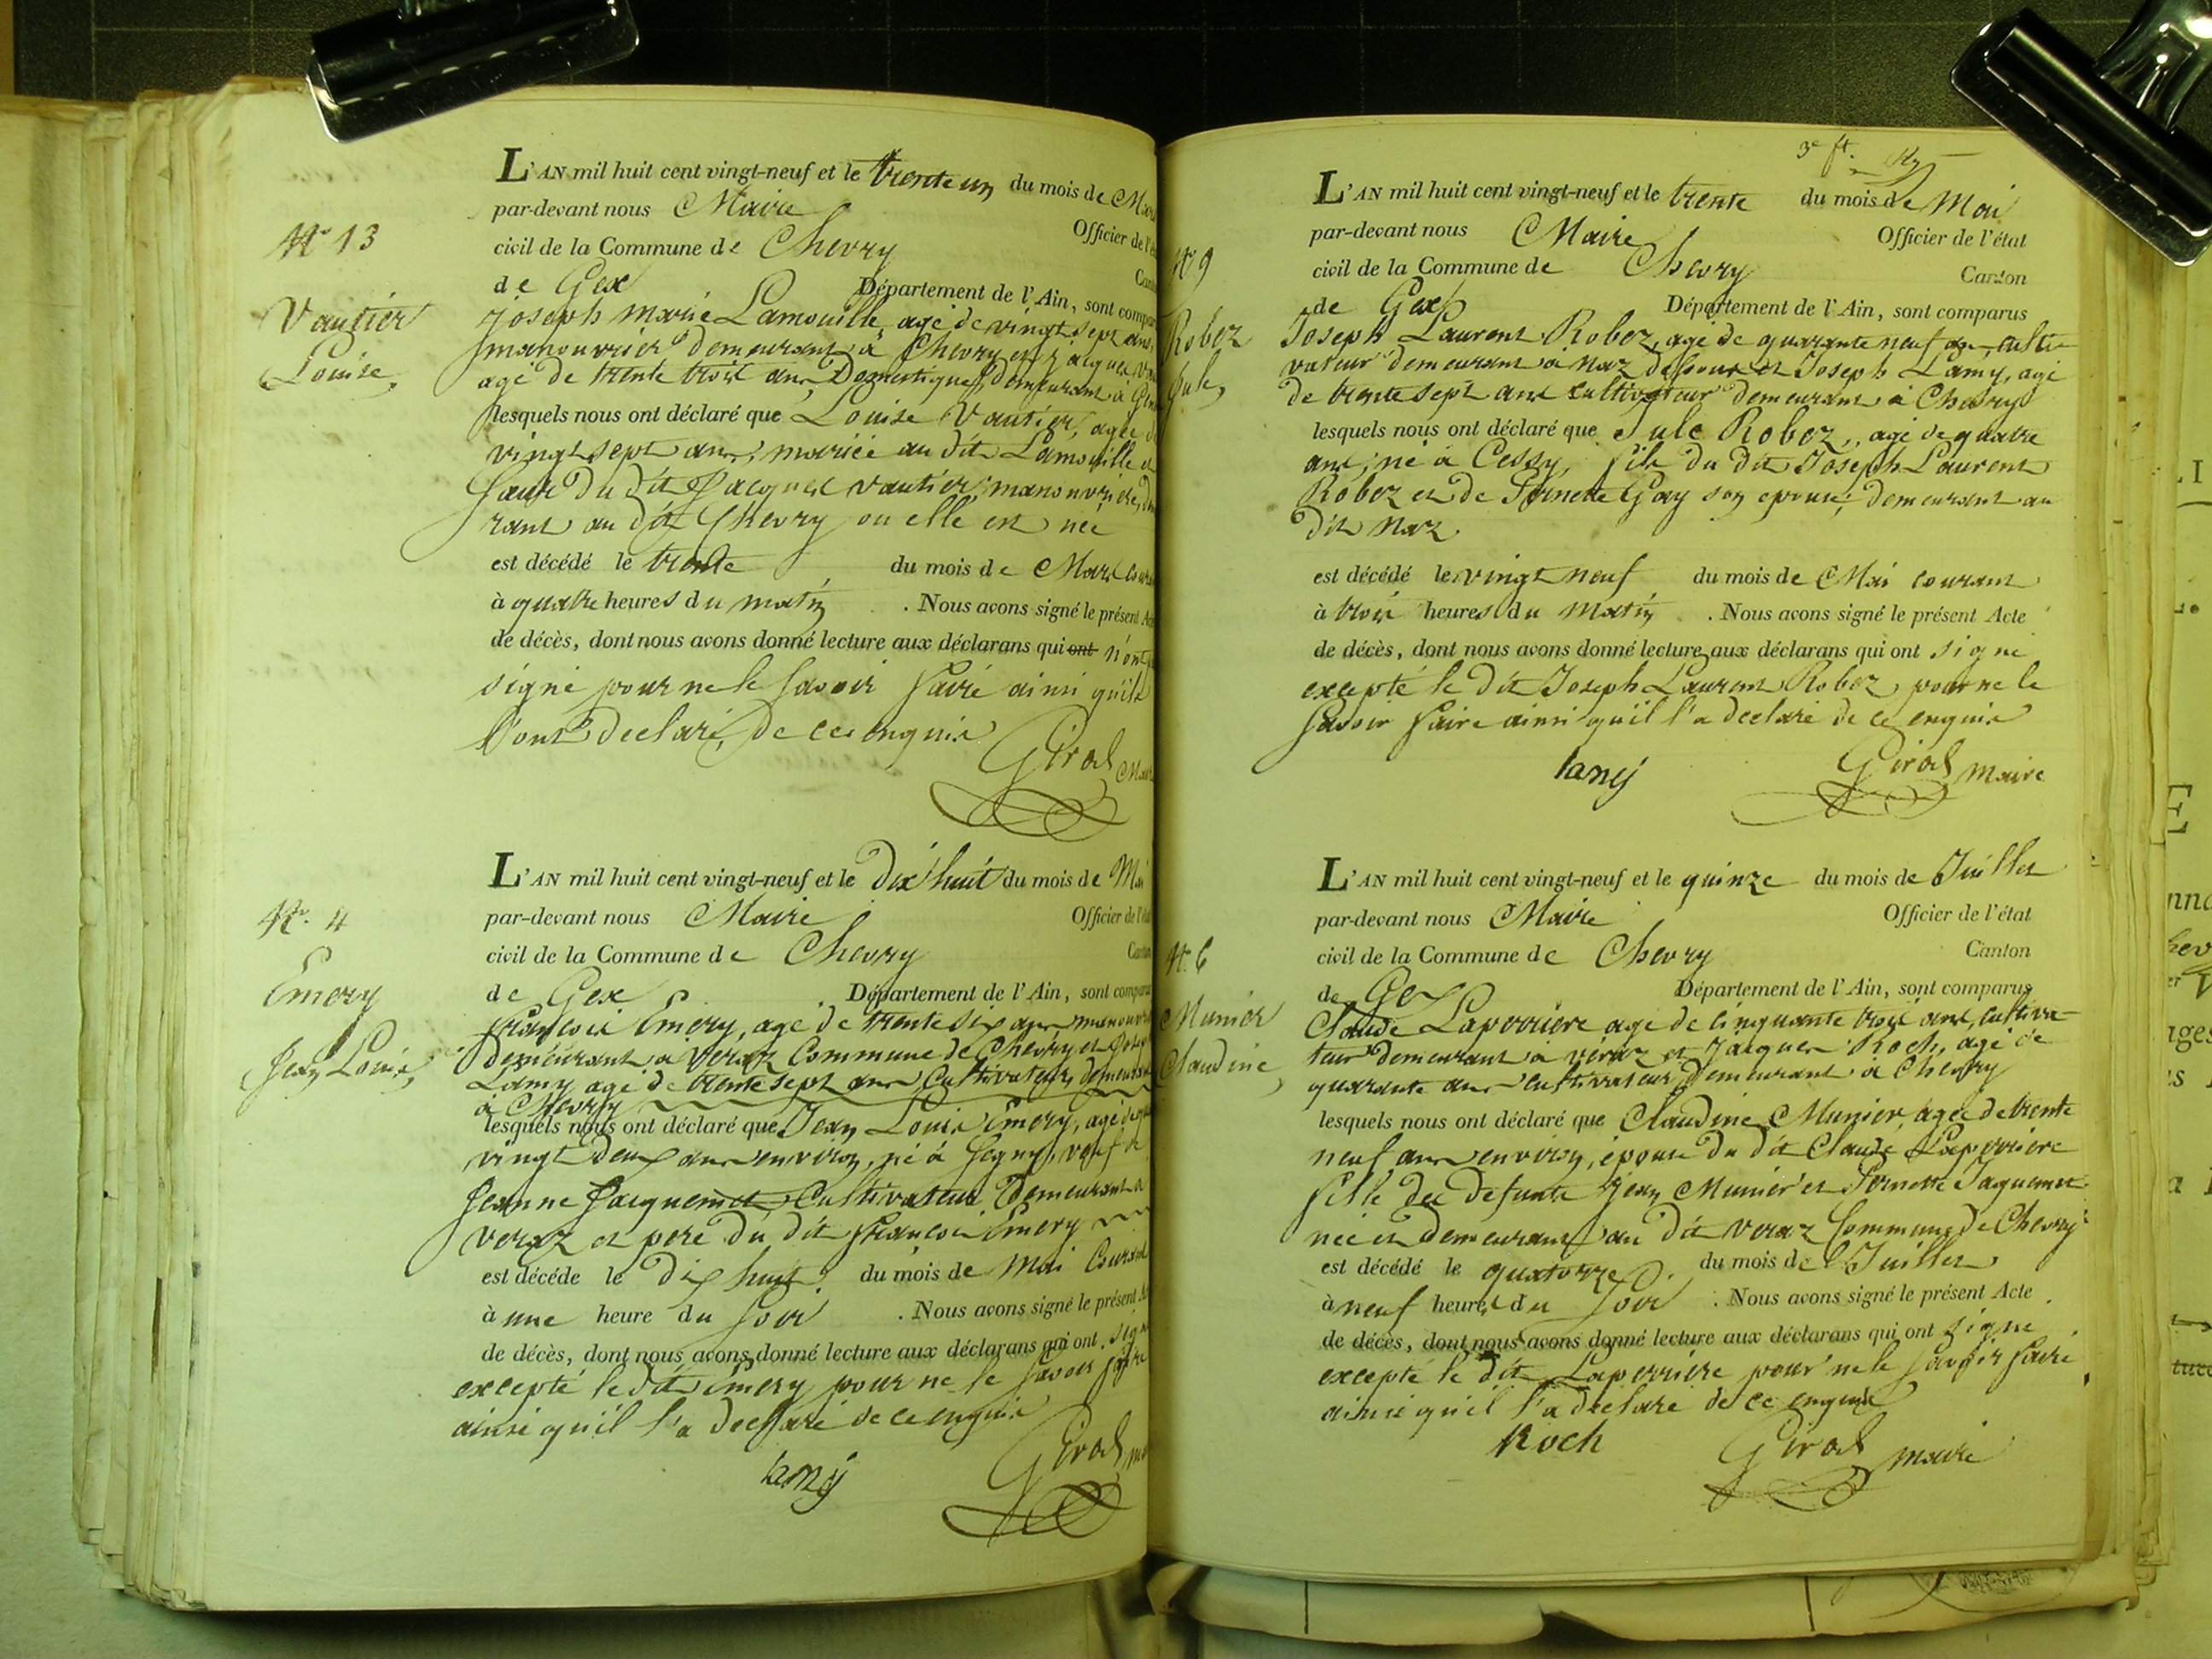 N° 13
Vautier
Louise
L'AN mil huit cent vingt-neuf et le trente un du mois de
par-devant nous Maire Officier de
civil de la Commune de Chevry
de Gex Département de l'Ain, sont
Joseph Marie Lamouille agé de vingt sept ans,
manouvrier demeurant à Chevry et Jacques
agé de trente trois ans Domestique demeurant à
lesquels nous ont déclaré que Louise Vautier, agée
vingt sept ans, mariée au dit Lamouille
Sœur du dit Jacques Vautier, manouvrière,
rant au dit Chevry ou elle est née
est décédé le trente du mois de Mars
à quatre heures du matin . Nous avons signé le présent
de décès, dont nous avons donné lecture aux déclarans qui ont n'ont
signé pour ne le savoir faire ainsi qu'ils
l'ont declaré de ce enquis
Girod
N°. 4
Emery
Jean Louis
L'AN mil huit cent vingt-neuf et le Dix huit du mois de Mai
par-devant nous Maire Officier de
civil de la Commune de Chevry
de Gex . Département de l'Ain, sont
François Emery, agé de trente six ans
demeurant à Véraz Commune de Chevry et
Lamy agé de trente sept ans Cultivateur,
à Chevry
lesquels nous ont déclaré que Jean Louis Emery, agé
vingt deux ans environ, né à Segny, veuf de
Jeanne Jacquemet, Cultivateur Demeurant a
Veraz et pere du dit François Emery
est décédé le dix huit du mois de Mai
à une heure du soir . Nous avons signé le présent
de décès, dont nous avons donné lecture aux déclarans qui ont
excepté le dit émery pour ne le savoir faire
ainsi qu'il l'a declaré de ce enquis
lamy Girod
3e ft.
N° 9
Robez
Jule
L'AN mil huit cent vingt-neuf et le trente du mois de Mai
par-devant nous Maire Officier de l'état
civil de la Commune de Chevry Canton
de Gex Département de l'Ain, sont comparus
Joseph Laurent Robez, agé de quarante neuf ans, culti-
vateur demeurant à Naz dessous et Joseph Lamy, agé
de trente sept ans cultivateur demeurant à Chevry
lesquels nous ont déclaré que Jule Robez, agé de quatre
ans, né à Cessy, fils du dit Joseph Laurent
Robez et de Pernette Gay son epouse, demeurant au
dit Naz
est décédé le vingt neuf du mois de Mai courant
à trois heures du Matin . Nous avons signé le présent Acte
de décès, dont nous avons donné lecture aux déclarans qui ont signé
excepté le dit Joseph Laurent Robez, pour ne le
savoir faire ainsi qu'il l'a declaré de ce enquis
lamy Girod maire
N°. 6
Munier
Claudine
L'AN mil huit cent vingt-neuf et le quinze du mois de Juillet
par-devant nous Maire Officier de l'état
civil de la Commune de Chevry Canton
de Gex Département de l'Ain, sont comparus
Claude Laperriere agé de cinquante trois ans, cultiva-
teur demeurant à véraz et Jacques Roch, agé de
quarante ans cultivateur, demeurant à Chevry
lesquels nous ont déclaré que Claudine Munier, agée de trente
neuf ans environ, épouse du dit Claude Laperriere
fille des defunts Jean Munier et Pernette Jaquemet
née et demeurant au dit Veraz Commune de Chevry
est décédé le quatorze du mois de Juillet
à neuf heures du Soir . Nous avons signé le présent Acte
de décès, dont nous avons donné lecture aux déclarans qui ont signé
excepté le dit Laperriere pour ne le savoir faire
ainsi qu'il l'a déclaré de ce enquis
Roch Girod maire